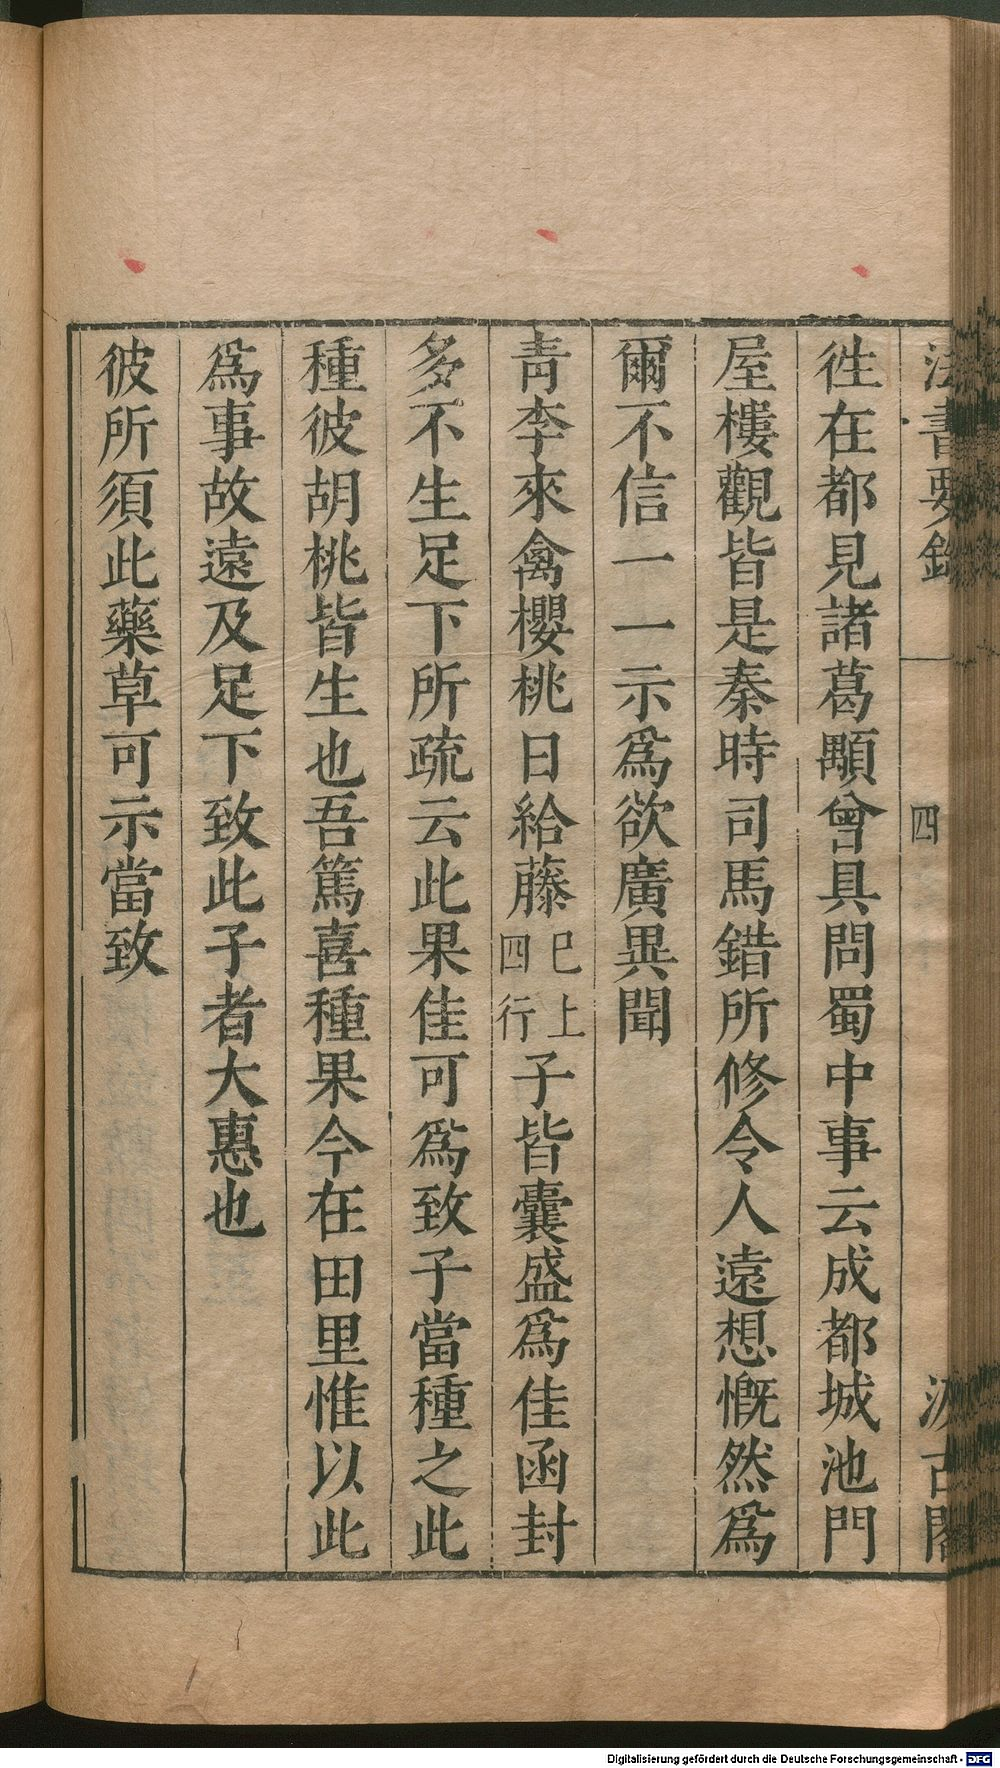 法書要錄 四 汲古閣
徃在都見諸葛顒曾具問蜀中事云成都城池門
屋樓觀皆是秦時司馬錯所修令人遠想慨然爲
爾不信一一示爲欲廣異聞
青李來禽櫻桃日給藤巳上四行子皆囊盛爲佳函封
多不生足下所疏云此果佳可爲致子當種之此
種彼胡桃皆生也吾篤喜種果今在田里惟以此
爲事故遠及足下致此子者大惠也
彼所須此藥草可示當致
Digitalisierung gefördert durch die Deutsche Forschungsgemeinschaft - DFG